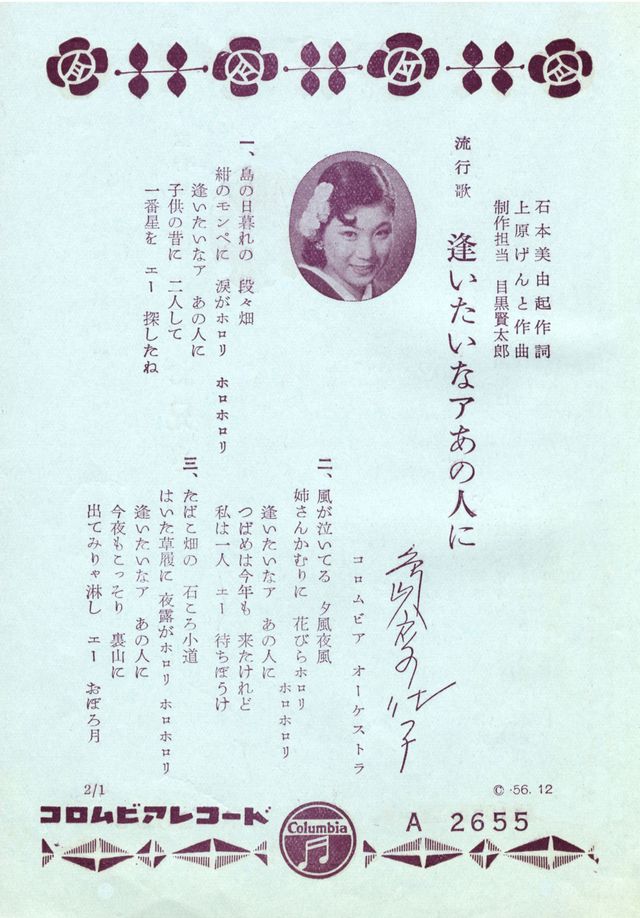 石本美由起作詞
上原げんと作曲
制作担当 目黒賢太郎
流行歌 逢いたいなアあの人に
コロムビア オーケストラ
一、島の日暮れの 段々畑
紺のモンペに 涙がホロリ ホロホロリ
逢いたいなア あの人に
子供の昔に 二人して
一番星を エー 探したね
二、風が泣いてる 夕風夜風
姉さんかむりに 花びらホロリ ホロホロリ
逢いたいなア あの人に
つばめは今年も 来たけれど
私は一人 エー 待ちぼうけ
三、たばこ畑の 石ころ小道
はいた草履に 夜露がホロリ ホロホロリ
逢いたいなア あの人に
今夜もこっそり 裏山に
出てみりゃ淋し エー おぼろ月
2/1
© ·56. 12
コロムビアレコード
Columbia
A 2655